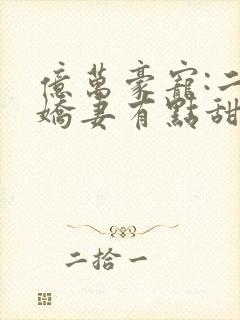 億萬豪寵:二
嬌妻有點甜
二拾一